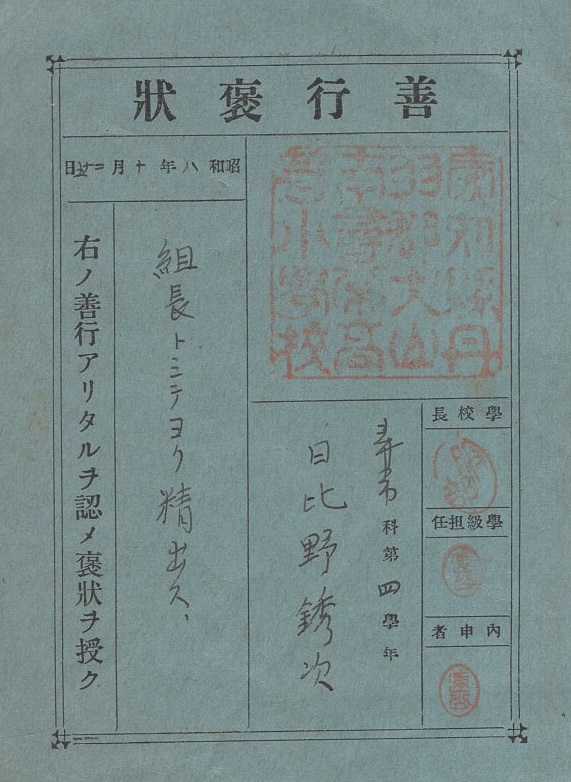 善行褒狀
愛知縣丹
羽郡犬山
南尋常高
等小學校
學校長
學級担任
內申者
尋常科第四學年
日比野銹次
昭和八年十月日
組長トシテヨク精出ス、
右ノ善行アリタルヲ認メ褒狀ヲ授ク